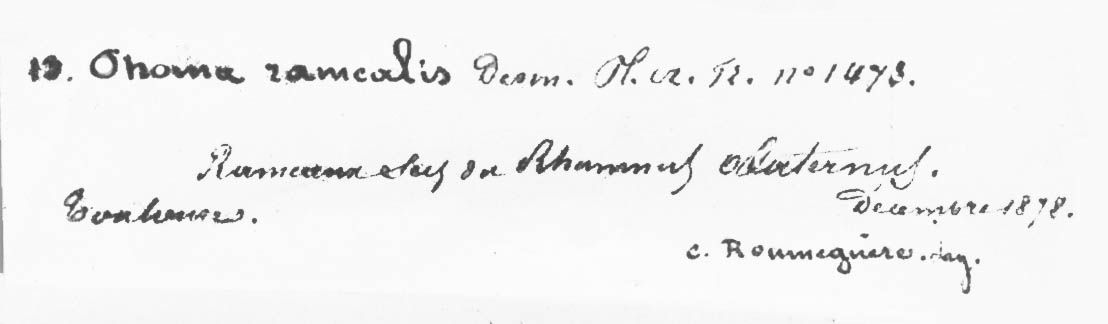 13. Phoma ramealis Desm. Pl. cr. Fr. no 1473.
Rameaux secs du Rhamnus Alaternus.
Toulouse. Décembre 1878.
C. Roumeguère. leg.